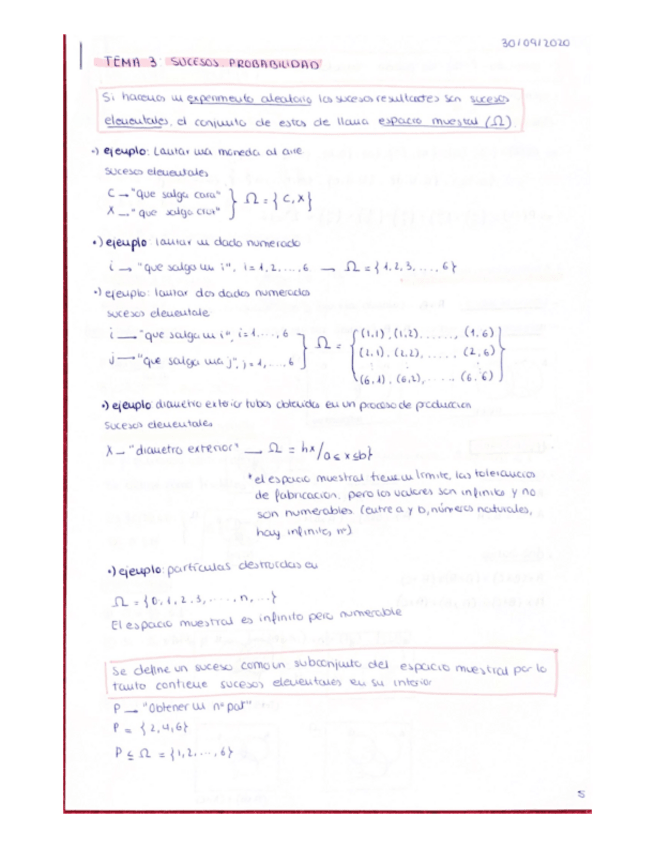 30/09/2020
TEMA 3 SUCESOS PROBABILIDAD
Si hacemos un experimento aleatorio los sucesos resultantes son sucesos
elementales, el conjunto de estos de llama espacio muestral (Ω)
•) ejemplo: Lanzar una moneda al aire
sucesos elementales
C → "que salga cara"
X → "que salga cruz"
Ω = { C, X }
•) ejemplo lanzar un dado numerado
i → "que salga un i", i = 1, 2, ..., 6 → Ω = {1, 2, 3, ..., 6}
•) ejemplo: lanzar dos dados numerados
sucesos elementale
i → "que salga un i", i = 1, ..., 6
j → "que salga una j", j = 1, ..., 6
Ω =
(1,1), (1,2), ......., (1,6)
(2,1), (2,2), ...... (2,6)
(6,1), (6,2), ..... (6,6)
•) ejemplo diametro exterior tubos obtenidos en un proceso de produccion
sucesos elementales
X → "diametro exterior" → Ω = {x/a ≤ x ≤ b}
*el espacio muestral tiene un límite, las tolerancias
de fabricacion, pero los valores son infinitos y no
son numerables (entre a y b, números naturales,
hay infinitos nº)
•) ejemplo: partículas destruidas en
Ω = {0, 1, 2, 3, ...., n, ...}
El espacio muestral es infinito pero numerable
Se define un suceso como un subconjunto del espacio muestral por lo
tanto contiene sucesos elementales en su interior
P → "Obtener un nº par"
P = {2, 4, 6}
P ⊆ Ω = {1, 2, ..., 6}
5